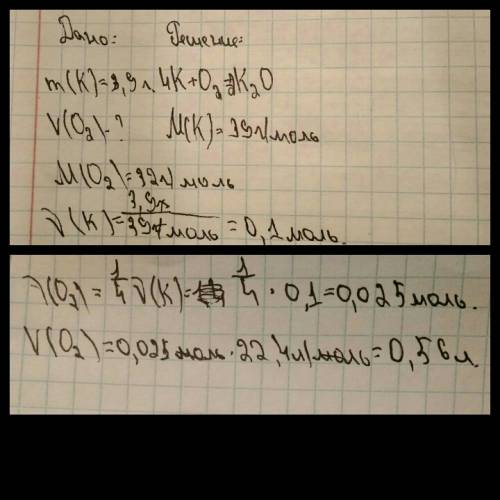 Дано: Решение:
m(K)=3,9г. 4K+O₂=2K₂O
V(O₂)-? M(K)=39г/моль
M(O₂)=32г/моль
ν(K)=3,9г/39г/моль=0,1моль.
ν(O₂)=1/4ν(K)= 1/4·0,1=0,025моль.
V(O₂)=0,025моль·22,4л/моль=0,56л.